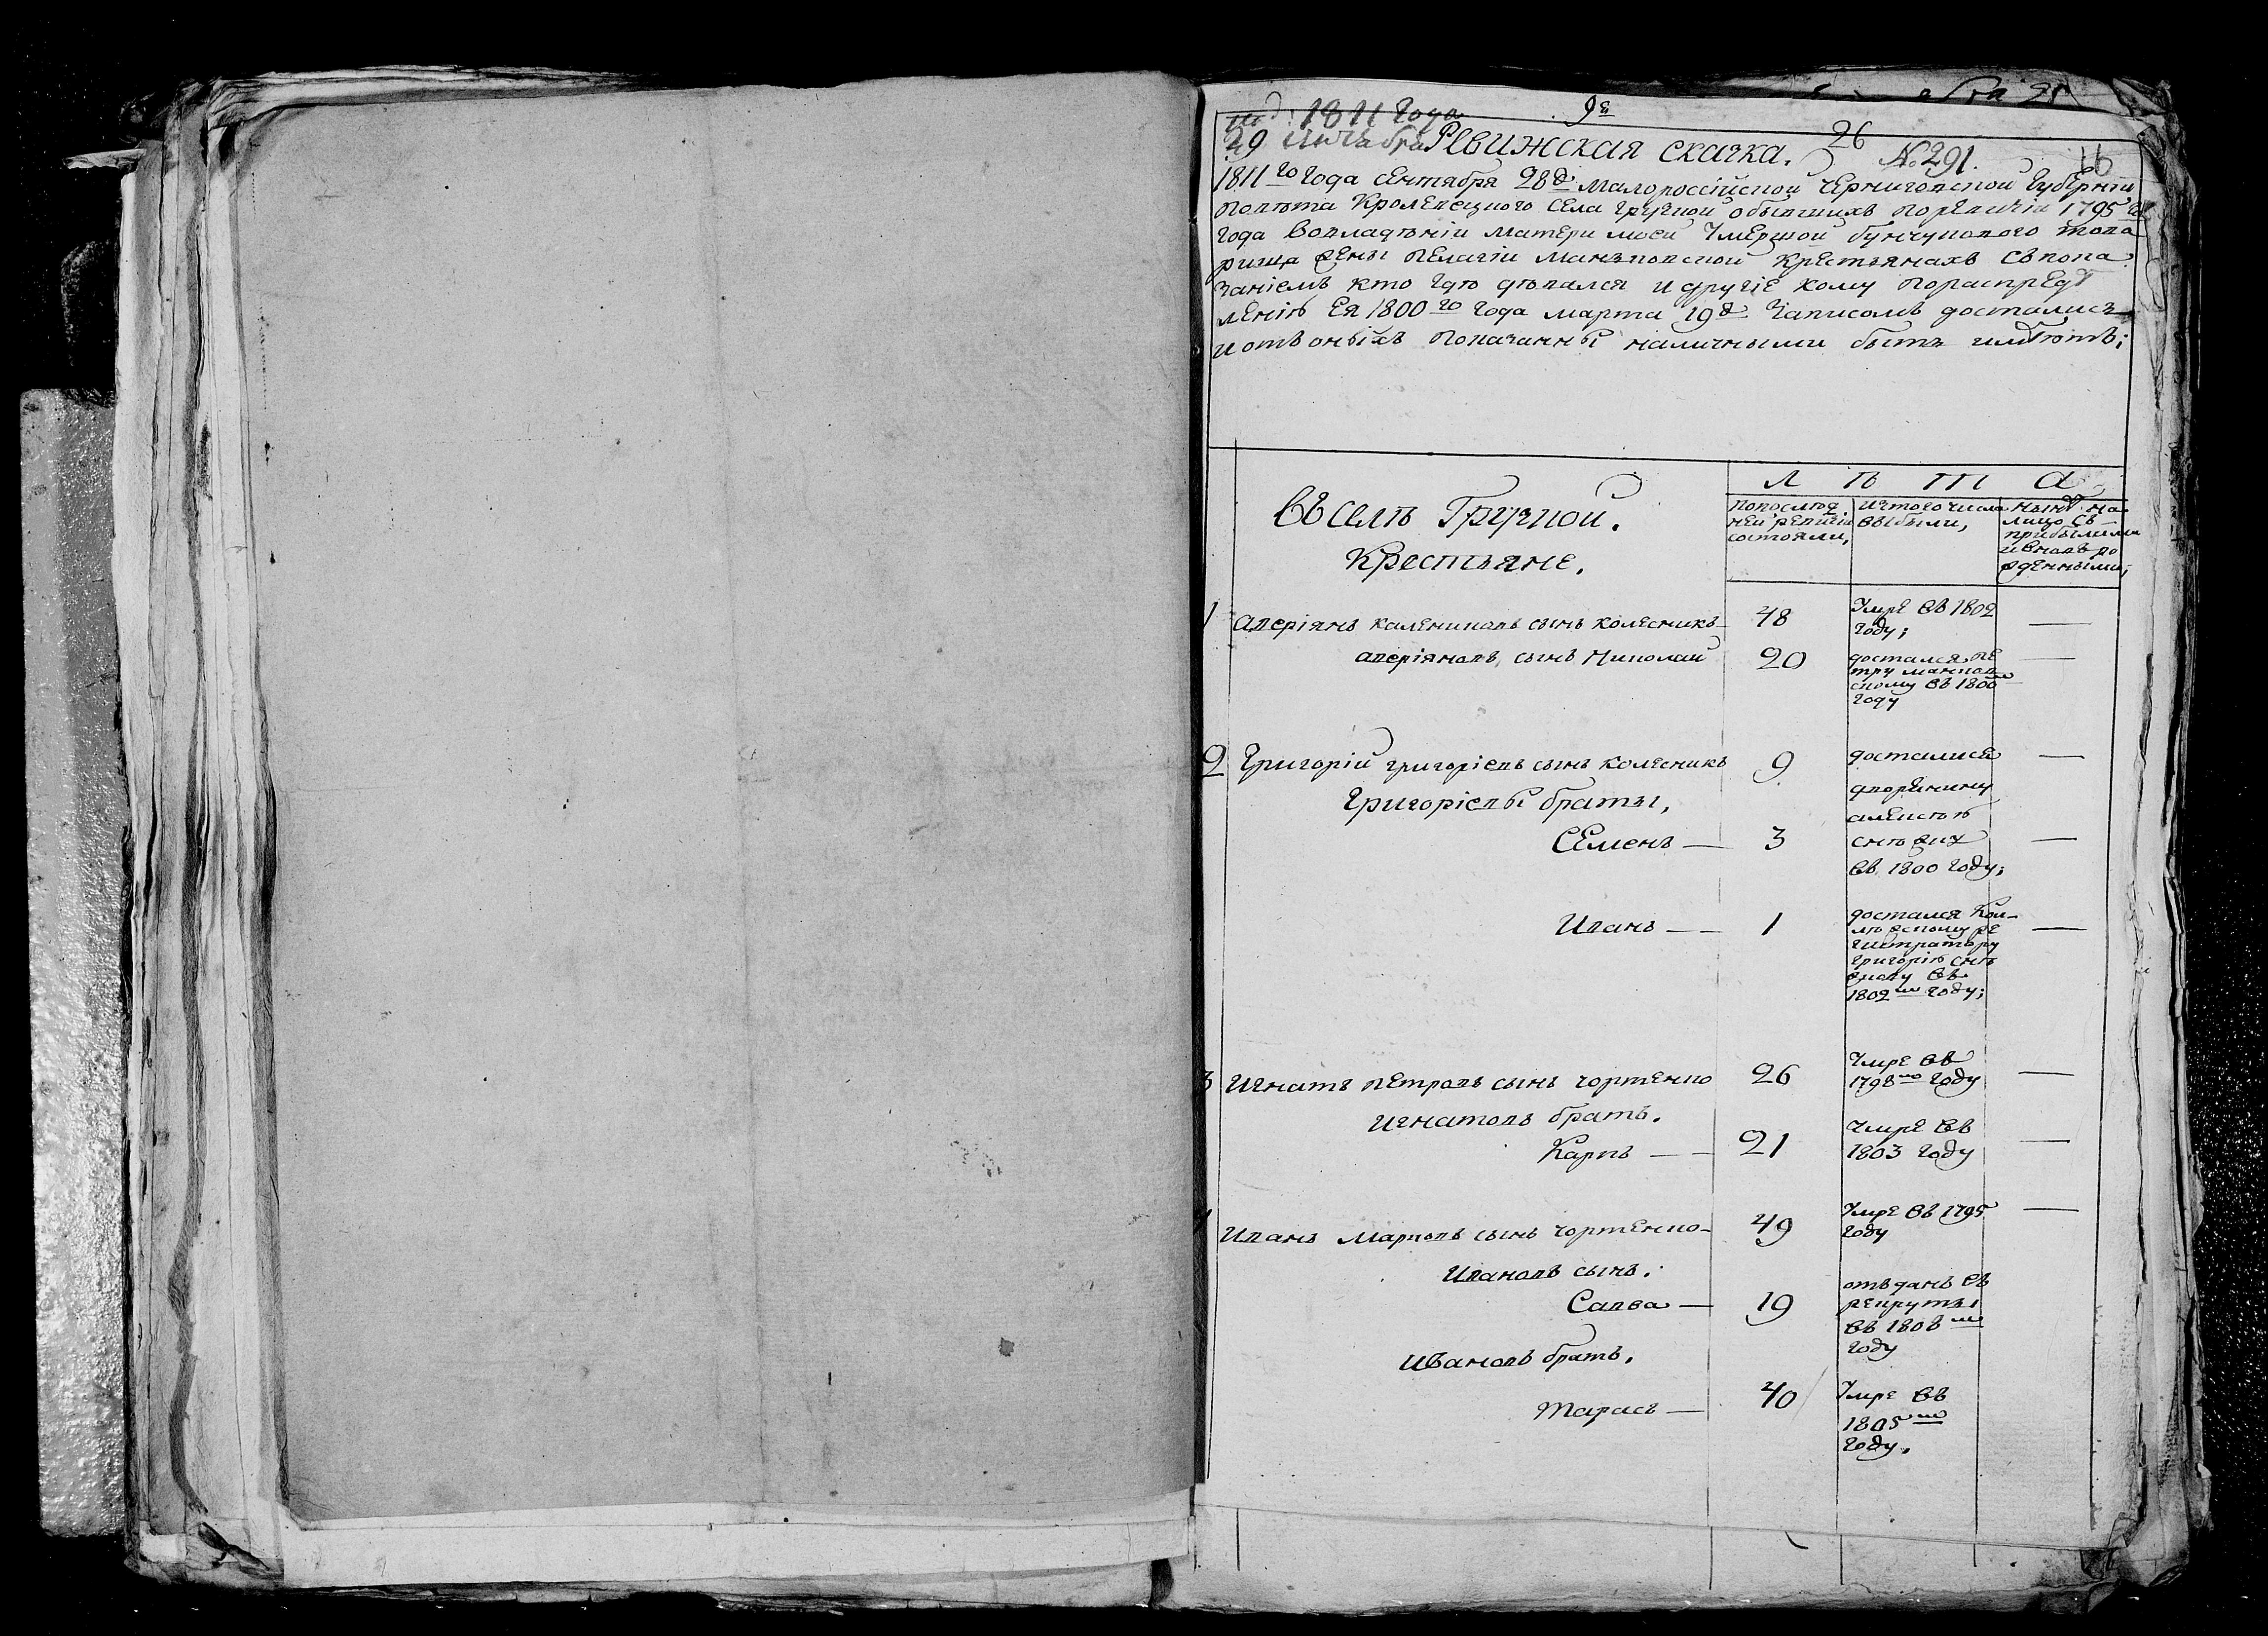 1811 Года 9я
29 26
Ревижская скаска. № 291.
1811го Года сентября 28д Малороссійской Черниговской Губерніи
повѣта Кролевецкого села Грузкой обывшихъ поревизіи 1795го
года вовладѣніи матери моей умершой бунчукового това
рища жены пелагіи Маньковской крестьянахъ съпока
заніемъ кто где девался идругіе кому пораспреде
ленію Ея 1800го Года марта 19д записомъ достались
иотъ оныхъ показанны наличными быть имѣютъ;
Въ селѣ Грузкой.
Крестьяне.
Л ѣ т а
попослѣд
ней ревизіи
состояли,
изтого числа
выбыли,
нынѣ на
лицо съ
прибылими
ивновь ро
жденными;
1 Аверіянъ калениковъ сынъ колесникъ 48 Умре въ 1802
Году;
аверіяновъ, сынъ Николай 20 достался пе
тру манков
скому въ 1800м
Году
2 Григорій григоріевъ сынъ колесникъ 9 достались
Григоріевы браты, дворянину
алексею
Семенъ 3
въ 1800 Году;
Иванъ 1 достался Кол-
лежскому ре
гистратору
Григорію
въ
1802м Году;
3 Игнатъ петровъ сынъ чортенко 26 Умре въ
1798м Году
Игнатовъ братъ.
Карпъ 21 Умре въ
1803 Году
4 Иванъ Марковъ сынъ чортенко 49 Умре въ 1795
Году
Ивановъ сынъ.
Савва 19 отъданъ въ
рекруты
въ 1808м
Году
Ивановъ братъ.
Тарасъ 40 Умре въ
1805м
Году.